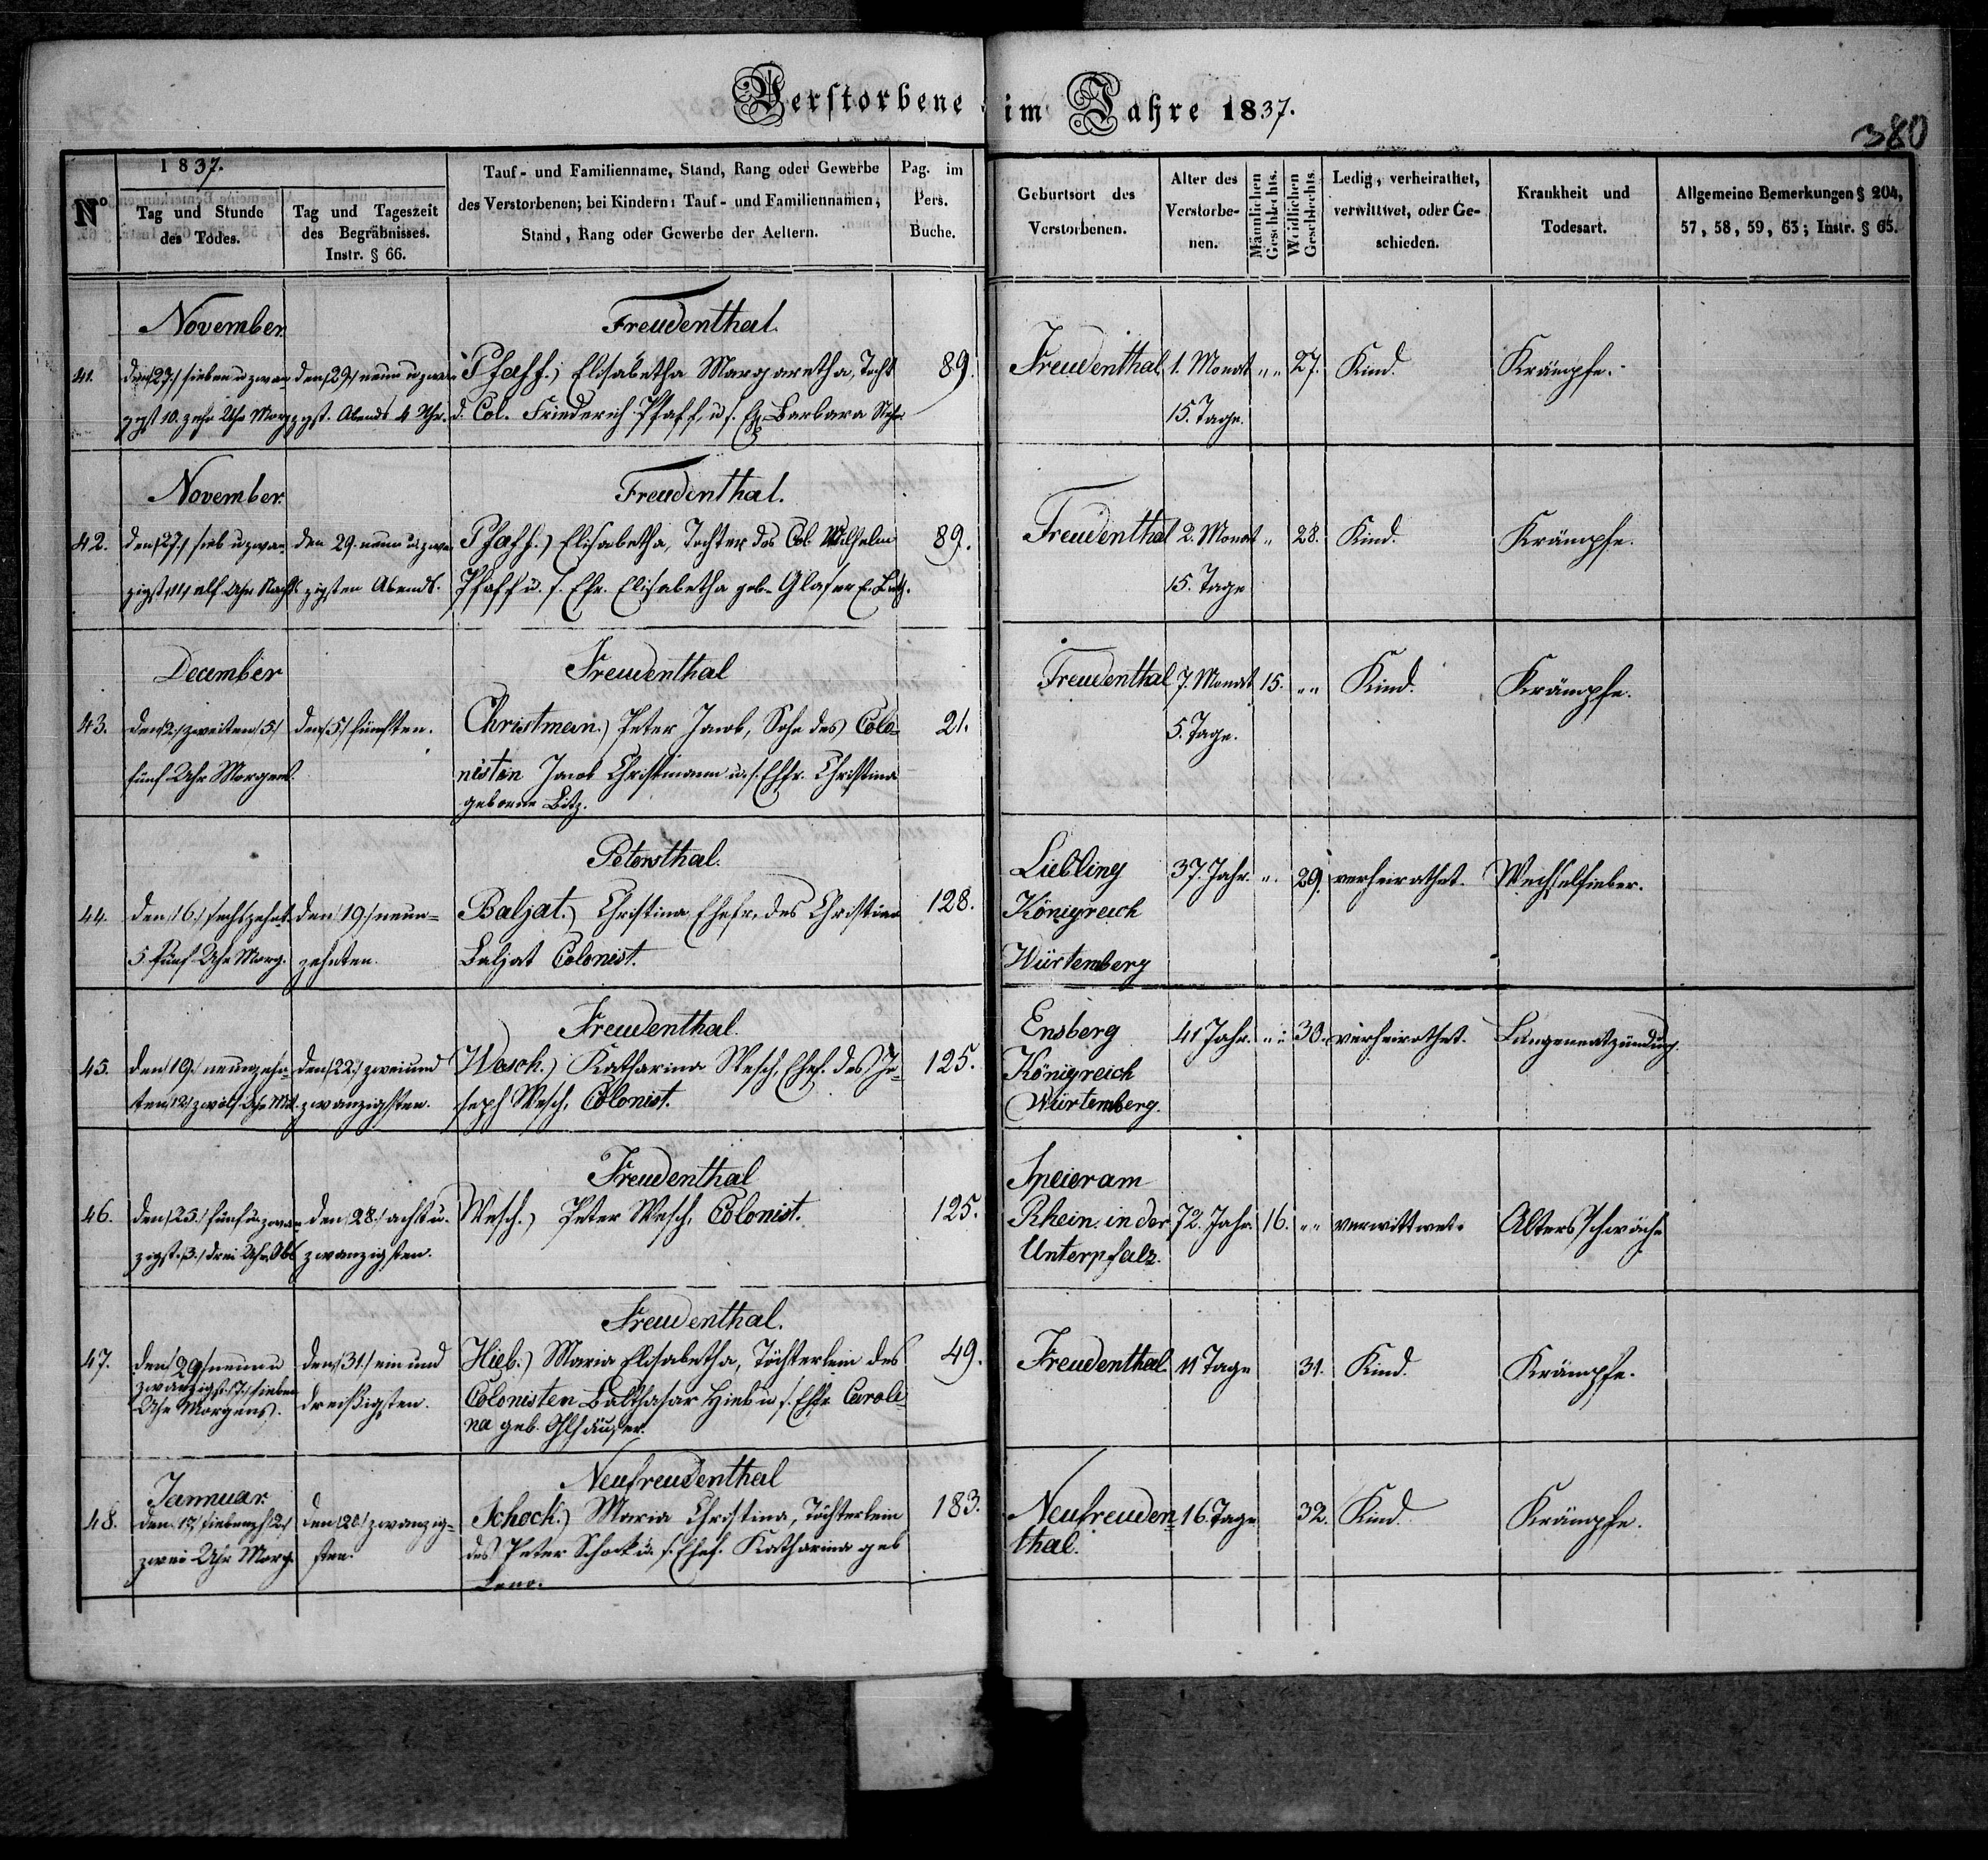 Verstorbene im Jahre 1837.
380
No
1837.
Tag und Stunde des Todes.
Tag und Tageszeit des Begräbnisses. Instr. § 66.
Tauf- und Familienname, Stand, Rang oder Gewerbe
des Verstorbenen; bei Kindern: Tauf- und Familiennamen,
Stand, Rang oder Gewerbe der Aeltern.
Pag. im Pers. Buche.
Geburtsort des Verstorbenen.
Alter des Verstorbe-nen.
Männlichen Geschlechts.
Weiblichen Geschlechts.
Ledig, verheirathet, verwittwet, oder Ge-schieden.
Krankheit und Todesart.
Allgemeine Bemerkungen § 204, 57, 58, 59, 63; Instr. § 65.
November. Freudenthal.
41. den 27. sieben u zwan den 29. neun u zwan Pfaff.) Elisabetha Margaretha, Tocht 89. Freudenthal 1. Monat „ „ 27. Kind. Krämpfe.
zgst 10. zehn Uhr Morg zgst. Abends 4 Uhr. d. Col. Friederich Pfaff, u s. Barbara 15. Tage.
November. Freudenthal.
42. den 27. sieb u zwan den 29. neun u zwan Pfaff.) Elisabetha, Tochter des Col. Wilhelm 89. Freudenthal 2. Monat „ 28. Kind. Krämpfe.
zigst 11 elf Uhr Nachts zigsten Abends. Pfaff u. s. Ehr. Elisabetha geb. Glaser 15. Tage
December Freudenthal
43. den 2. zweiten 5 den 5. fünften. Christman.) Peter Jacob, Sohn des Colo- 21. Freudenthal 7. Monat 15. „ „ Kind. Krämpfe.
fünf Uhr Morgens. nisten Jacob Christmann u. s. Ehfr. Christina 5. Tage.
geborene Litz.
Petersthal.
44. den 16. sechszehnt. den 19. neun= Baljat.) Christina Ehefr. des Christian 128. Liebling 37. Jahr. „ 29. verheirathet. Wechselfieber.
5. fünf Uhr Morg. zehnten. Baljat Colonist. Königreich
Würtemberg
Freudenthal
45. den 19. neunzehn= den 22. zweiund Wesch.) Katharina Wesch, Ehef. des Jo- 125. Ensberg 41 Jahr. „ „ 30. verheirathet. Lungenentzündung.
ten 12 zwölf Uhr Mit. zwanzigsten. seph Wesch, Colonist. Königreich
Würtemberg.
Freudenthal
46. den 25. fünf u. zwan den 28. acht u. Wesch.) Peter Wesch, Colonist. 125. Speier am
zigst. 3. drei Uhr Ab zwanzigsten. Rhein in der 72. Jahr. 16. „ „ verwittwet. Altersschwäche
Unterpfalz.
Freudenthal.
47. den 29 neun u den 31. ein und Hieb.) Maria Elisabetha, Töchterlein des 49. Freudenthal. 11 Tage 31. Kind. Krämpfe.
zwanzigst. 7. sieben dreißigsten. Colonisten Balthasar Hieb u s. Ehfr. Caroli-
Uhr Morgens. na geb. Ohlhäuser.
Januar. Neufreudenthal
48. den 17. siebenzh 2 den 20. zwanzig= Schock.) Maria Christina, Töchterlein 183. Neufreuden= 16. Tage 32. Kind. Krämpfe.
zwei Uhr Morg. sten. des Peter Schock u. s. Ehef. Katharina geb thal.